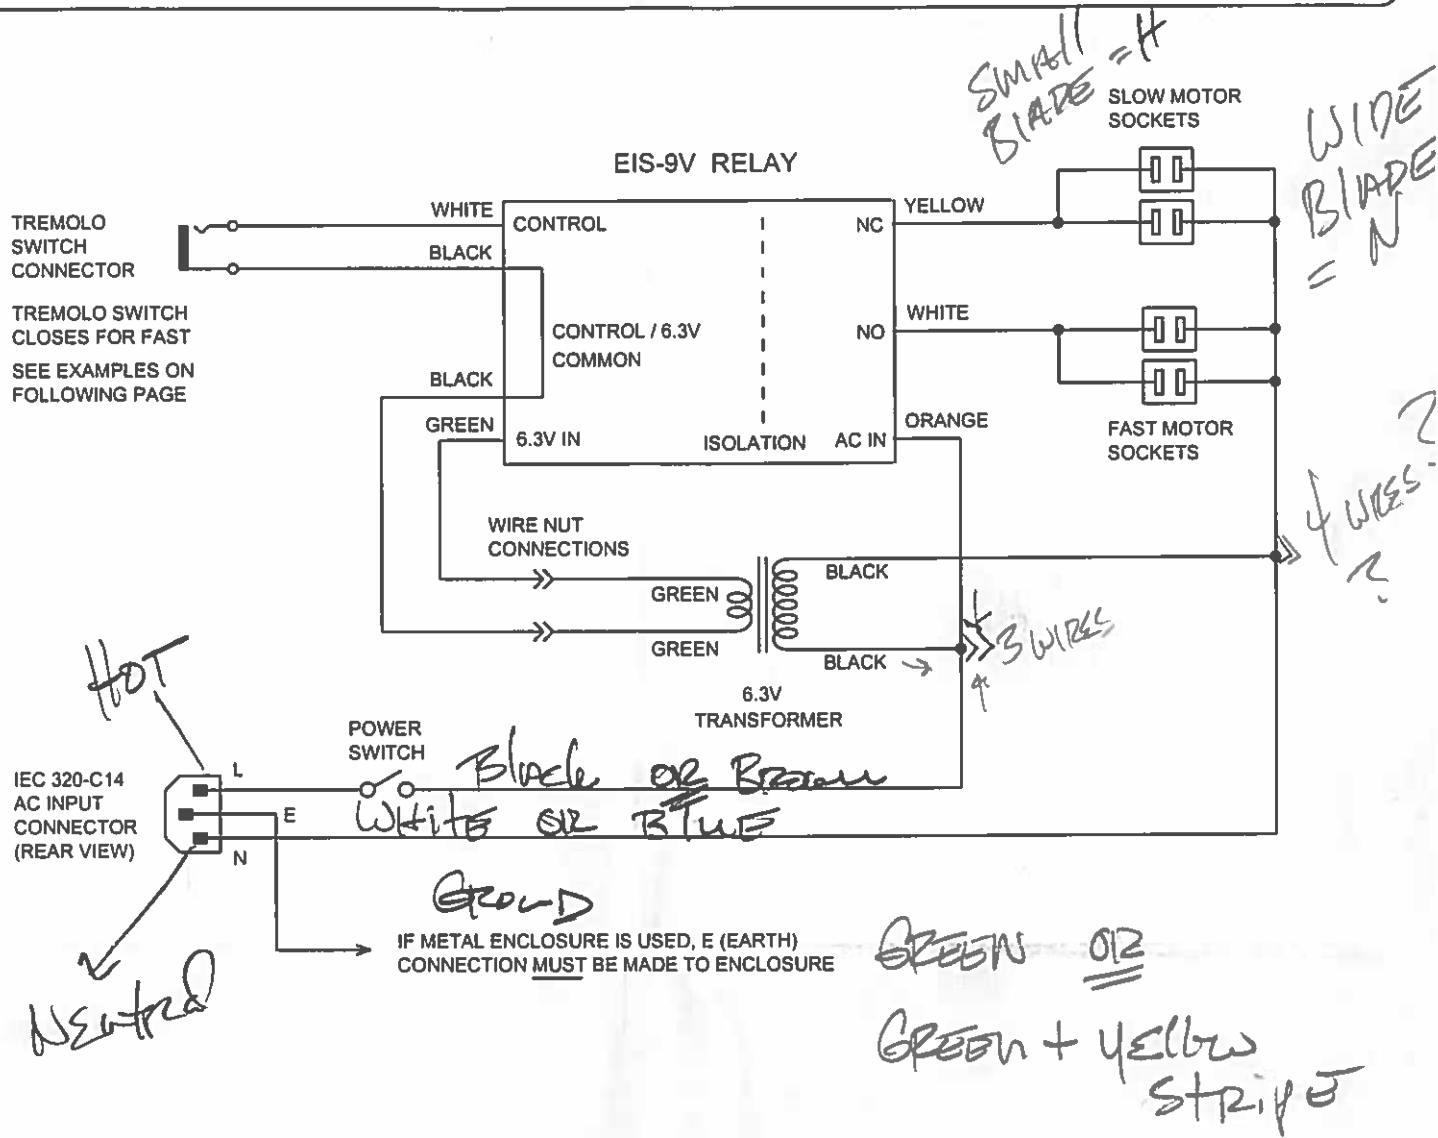 SMAll
BlADE = H
SLOW MOTOR
SOCKETS
WIDE
BlADE
= N
EIS-9V RELAY
TREMOLO
SWITCH
CONNECTOR
WHITE
BLACK
CONTROL
NC
YELLOW
TREMOLO SWITCH
CLOSES FOR FAST
SEE EXAMPLES ON
FOLLOWING PAGE
CONTROL / 6.3V
COMMON
NO
WHITE
BLACK
GREEN
6.3V IN
ISOLATION
AC IN
ORANGE
FAST MOTOR
SOCKETS
4 WIRES ?
?
WIRE NUT
CONNECTIONS
GREEN
GREEN
BLACK
BLACK
3 WIRES
6.3V
TRANSFORMER
HOT
POWER
SWITCH
Black OR Brown
WHitE OR BluE
IEC 320-C14
AC INPUT
CONNECTOR
(REAR VIEW)
L
E
N
NEutral
GrounD
IF METAL ENCLOSURE IS USED, E (EARTH)
CONNECTION MUST BE MADE TO ENCLOSURE
GREEN OR
GREEN + yEllow
StRipE